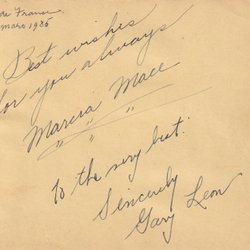 de France
mars 1935
Best wishes
for you always
Marcia Mace
" " "
To the very best.
Sincerely
Gary Leon